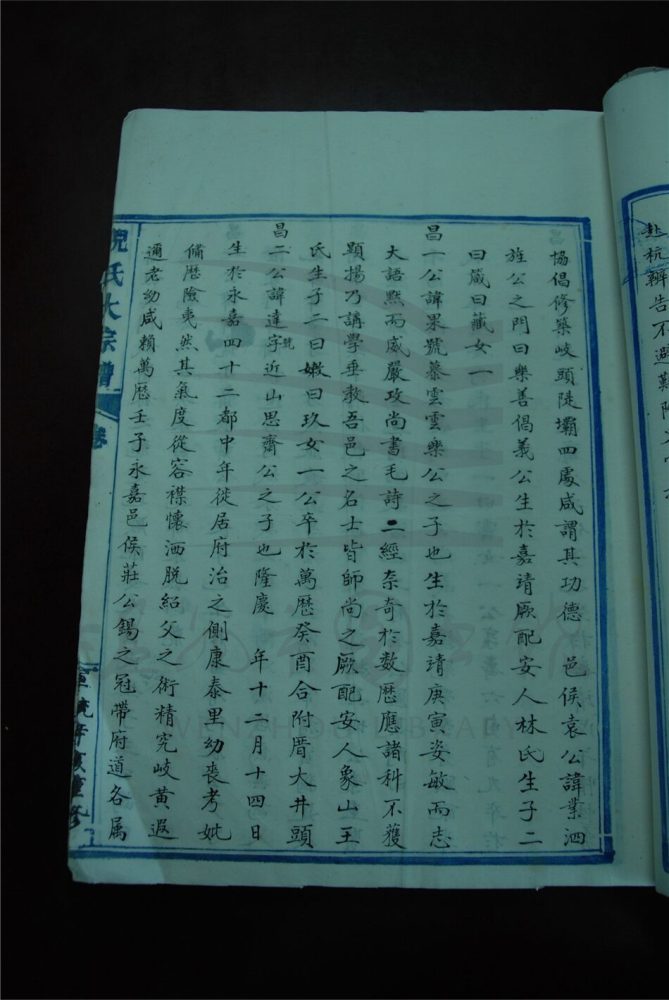 赴杭辨告不避艱險
協倡修築岐頭陡壩四處咸謂其功德 邑侯袁公諱業泗
旌公之門曰樂善倡義公生於嘉靖厥配安人林氏生子二
曰葳曰藏女一
昌一公諱果號慕雲雲樂公之子也生於嘉靖庚寅姿敏而志
大語默而威嚴攻尚書毛詩二經柰奇於数歷應諸科不獲
顯揚乃講學垂教吾邑之名士皆師尚之厥配安人象山王
氏生子二曰嫩曰玖女一公卒於萬歷癸酉合附厝大井頭
昌二公諱達字號近山思齋公之子也隆慶 年十二月十四日
生於永嘉四十二都中年徙居府治之側康泰里幼喪考妣
備歷險夷然其氣度從容襟懷洒脱紹父之術精究岐黃遐
邇老幼咸賴萬歷壬子永嘉邑侯莊公錫之冠帶府道各属
倪氏大宗譜 卷
重修
WENZHOU LIBRARY